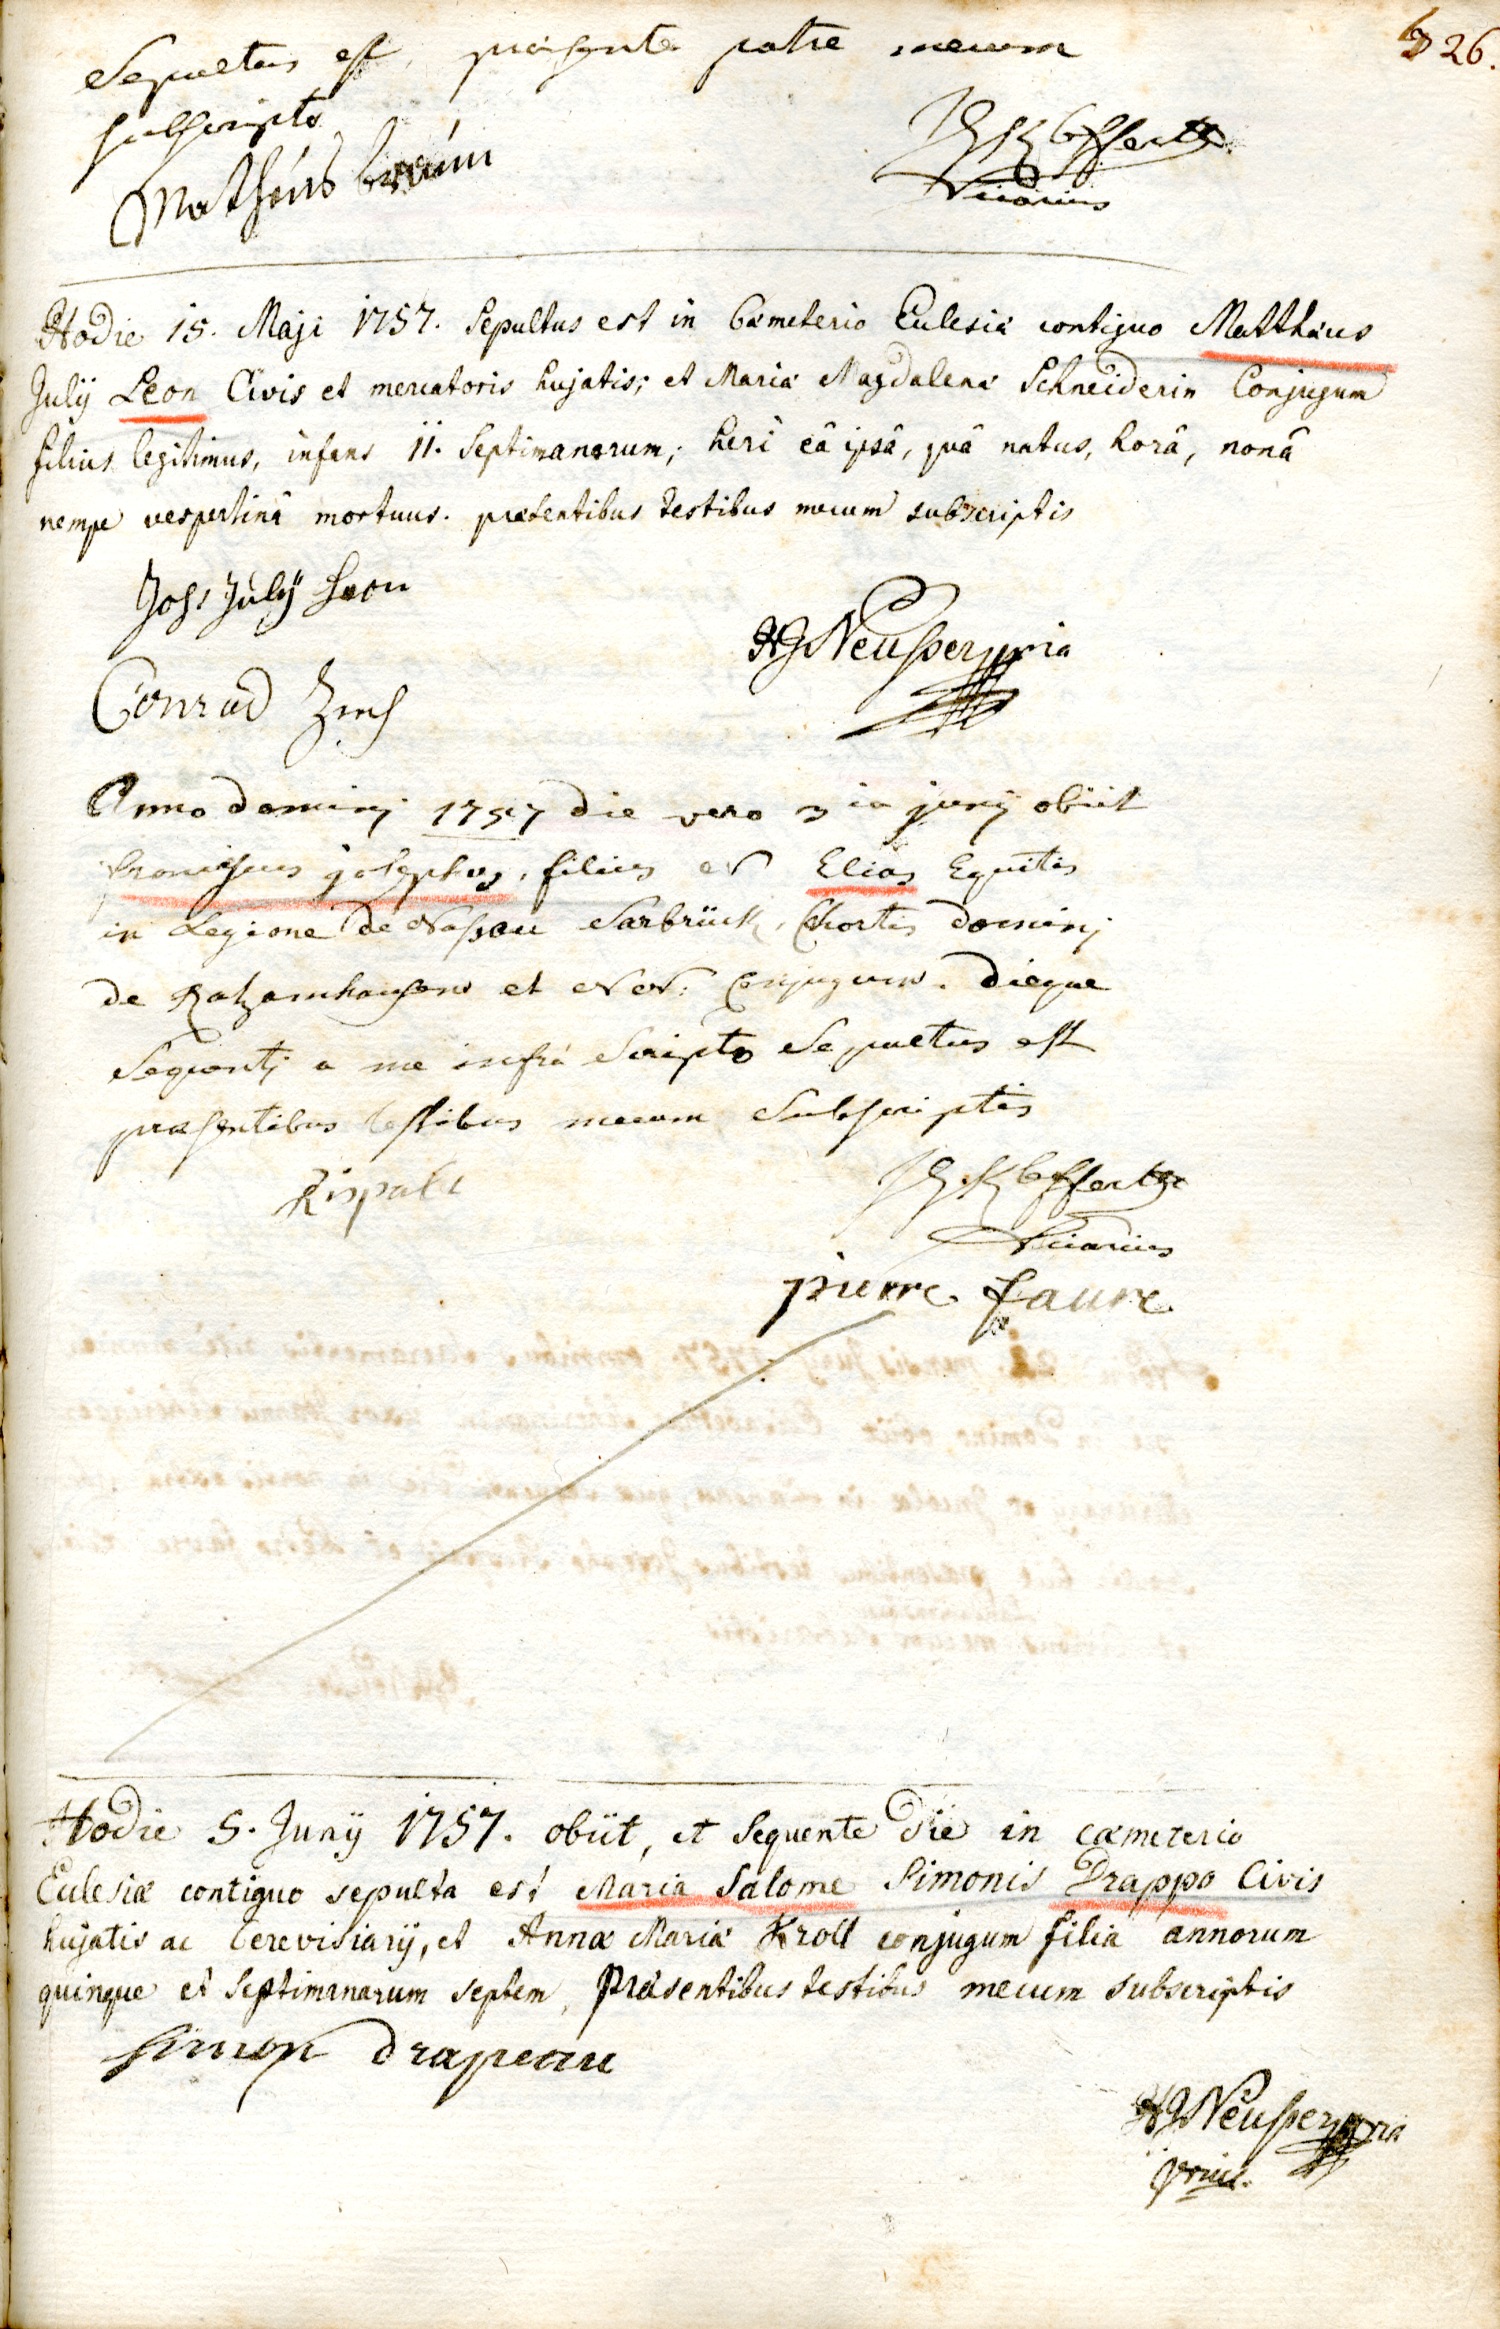 326.
Sepultus est, præsente patre mecum
subscripto
Matheis braun
Vicarius
Hodie 15. Maji 1757. Sepultus est in Cæmeterio Eclesiæ contiguo Matthæus
Julij Leon Civis et mercatoris hujatis; et Mariæ Magdalenæ Schneiderin Conjugum
filius legitimus, infans 11. Septimanarum; heri eâ ipsâ, quâ natus, horâ, nonâ
nempe vespertinâ mortuus. præsentibus testibus mecum subscriptis
Joh: Julÿ Leon
HJNeusser mpria
Conrad
Anno dominj 1757 die vero 3 ia junij obiit
franciscus josephus, filius N Elias Equitis
in Legione de Nassau Sarbrück, Chortis dominj
de Ratzamhausens et N N: Conjugum. dieque
sequentj a me infrá Scripto Sepultus est
præsentibus testibus mecum Subscriptis
Rispale
Vicarius
pierre faure
Hodie 5. Junij 1757. obiit, et Sequente Die in cæmeterio
Eclesiæ contiguo sepulta est Maria Salome Simonis Drappo Civis
hujatis ac Cerevisiarij, et Annæ Mariæ Kroll conjugum filia annorum
quinque et Septimanarum septem, Præsentibus testibus mecum subscriptis
simon drapeau
HJNeusser mpria